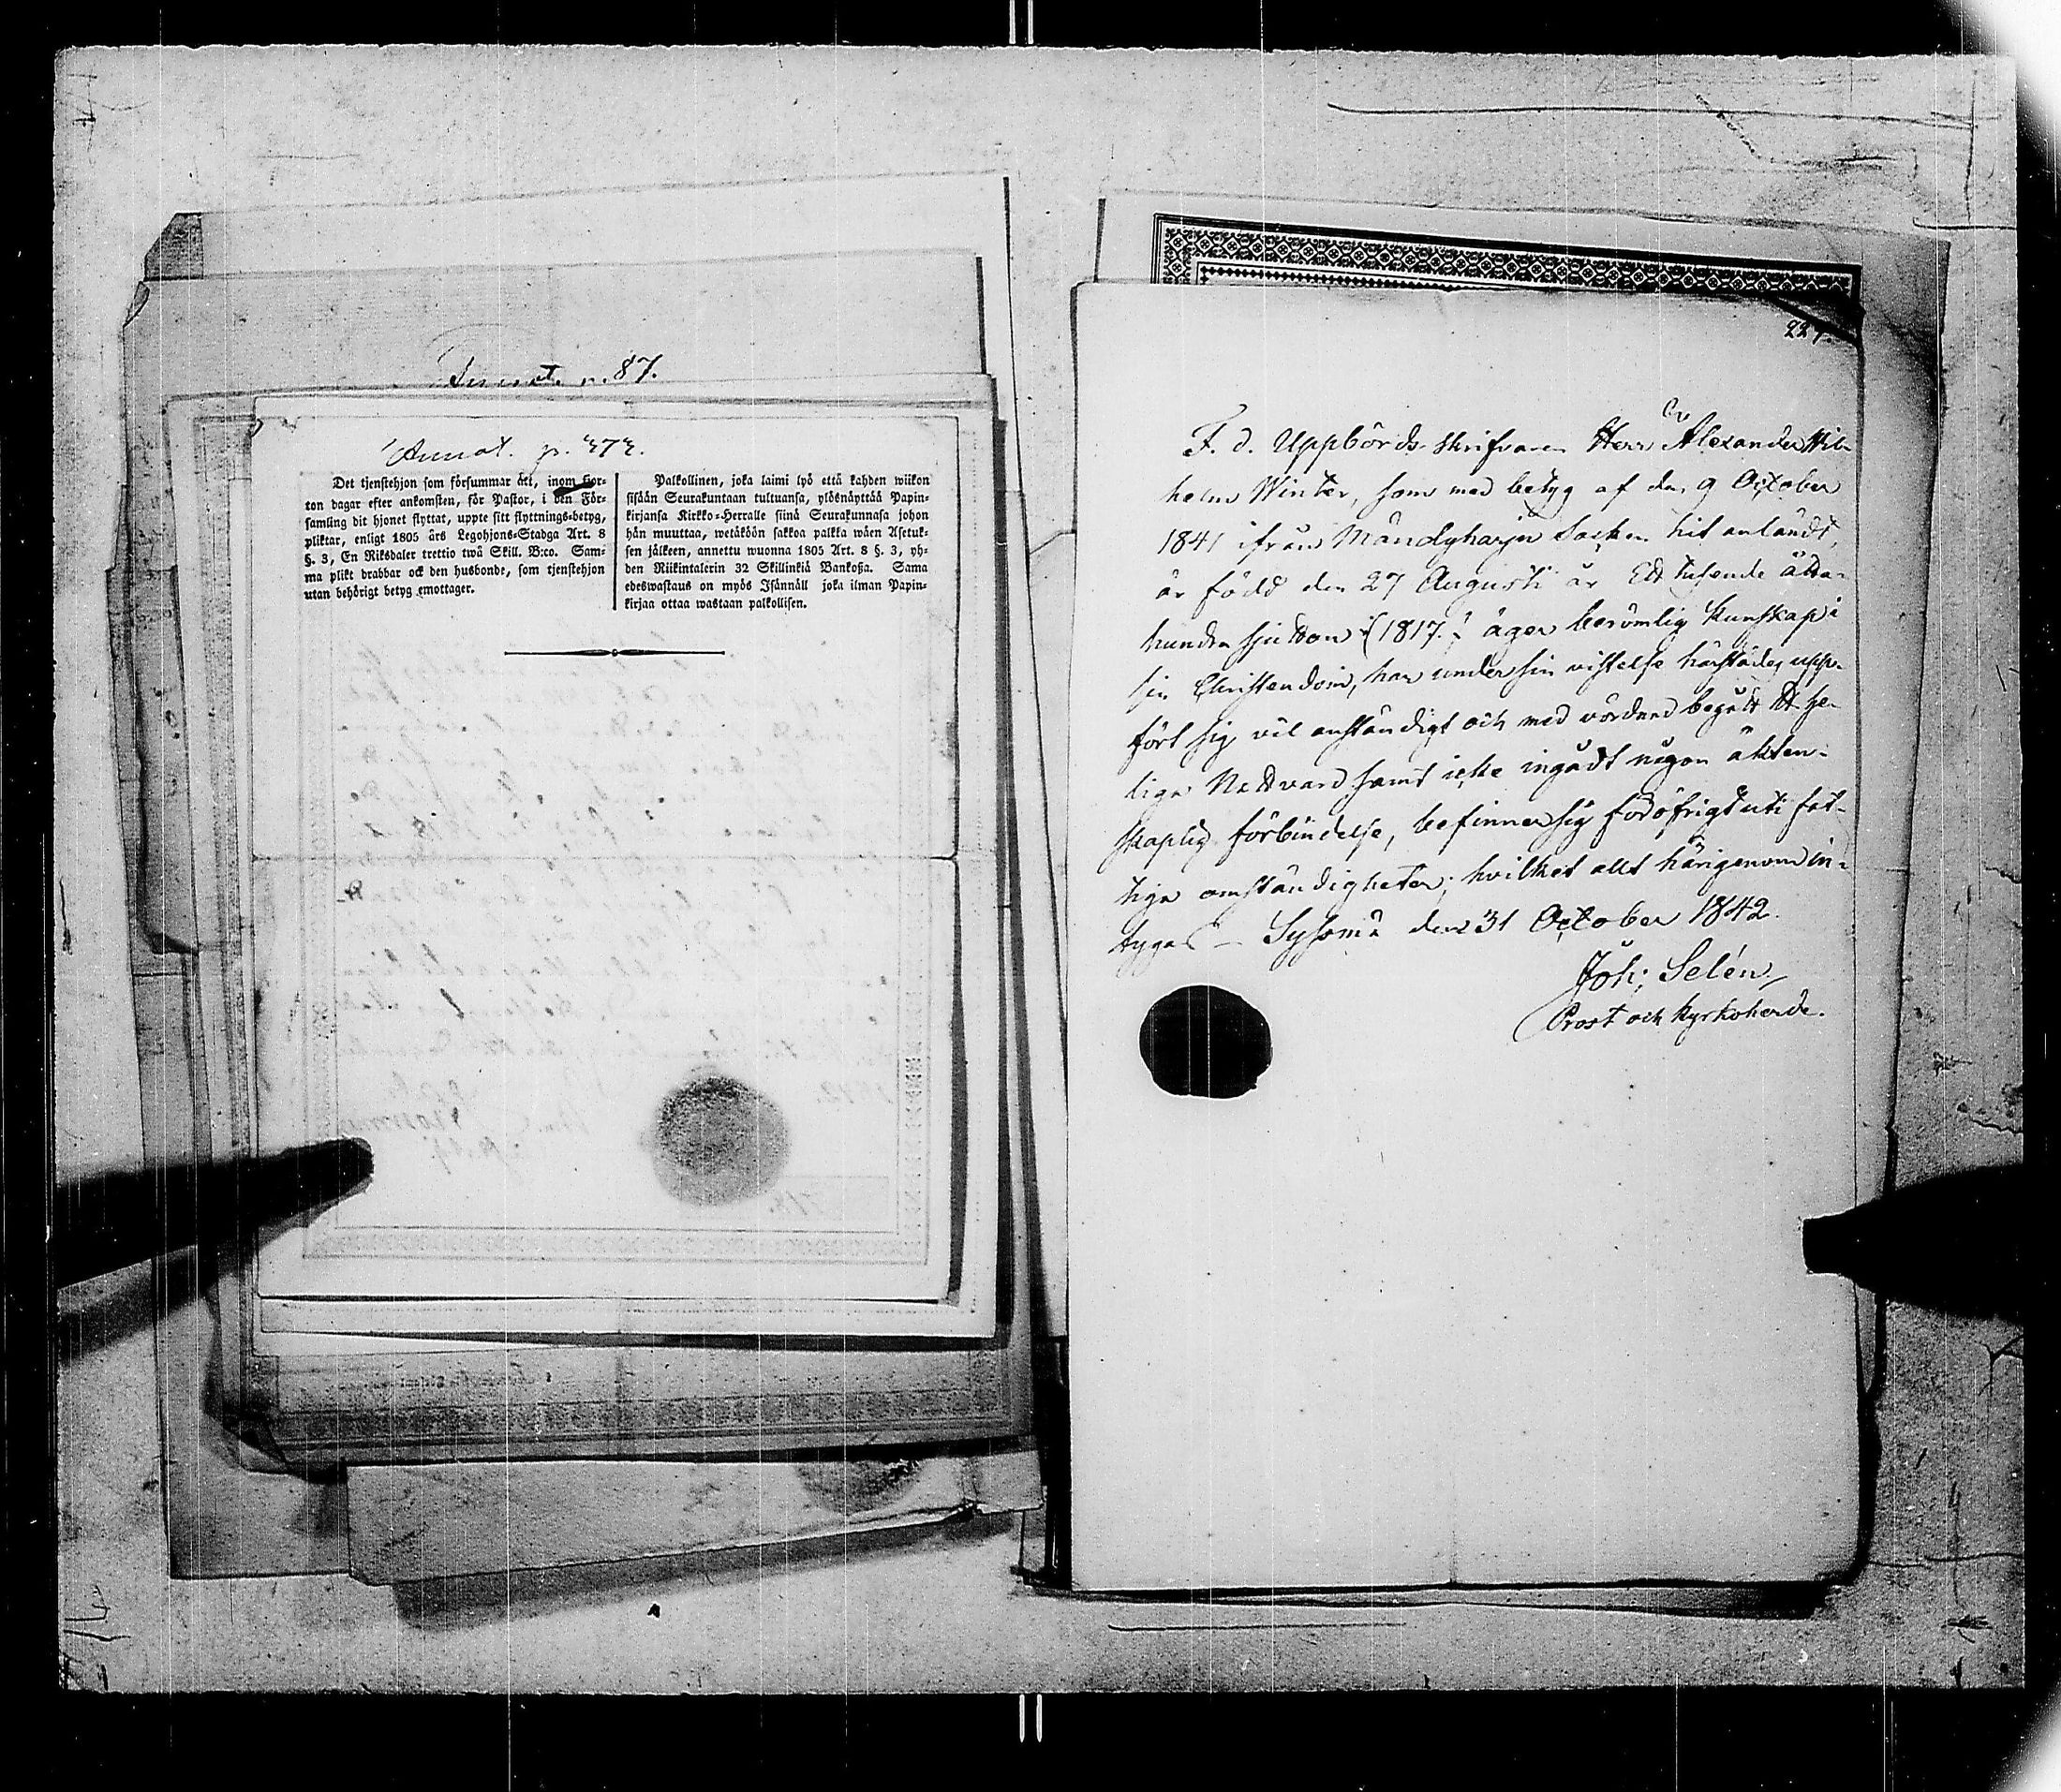 Annot. p. 87.
Annot. p. 373.
Det tjenstehjon som försummar att, inom fjor-
ton dagar efter ankomsten, för Pastor, i den För-
samling dit hjonet flyttat, uppte sitt flyttnings-betyg,
pliktar, enligt 1805 års Legohjons-Stadga Art. 8
§. 3, En Riksdaler trettio twå Skill. B:co. Sam-
ma plikt drabbar ock den husbonde, som tjenstehjon
utan behörigt betyg emottager.
Palkollinen, joka laimi lyö että kahden wiikon
sisään Seurakuntaan tultuansa, ylösnäyttää Papin-
kirjansa Kirkko-Herralle siinä Seurakunnasa johon
hän muuttaa, wetäköön sakkoa palkka wäen Asetuk-
sen jälkeen, annettu wuonna 1805 Art. 8 §. 3, yh-
den Riikintalerin 32 Skillinkiä Bankoßa. Sama
edeswastaus on myös Isännäll joka ilman Papin-
kirjaa ottaa wastaan palkollisen.
227.
F. d. Uppbörds-skrifvaren Herr Alexander Wil-
helm Winter, som med betyg af den 9 October
1841 ifrån Mändyharju Socken hit anländt,
är född den 27 Augusti år Ett tusende åtta-
hundra sjutton (1817.) äger berömlig kunskap i
sin Christendom, har under sin vistelse härstädes upp-
fört sig väl anständigt och med vördnad begått H. He-
liga Nattvard samt icke ingådt någon äkten-
skaplig förbindelse, befinner sig föröfrigt uti fat-
tiga omständigheter; hvilket allt härigenom in-
tygas Sysmä den 31 October 1842.
Joh: Selén,
Prost och Kyrkoherde.